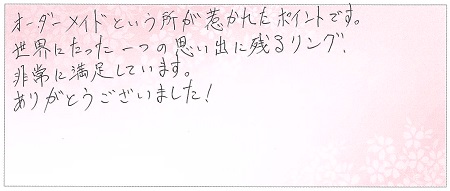 オーダーメイドという所が惹かれたポイントです。
世界にたった一つの思い出に残るリング、
非常に満足しています。
ありがとうございました!